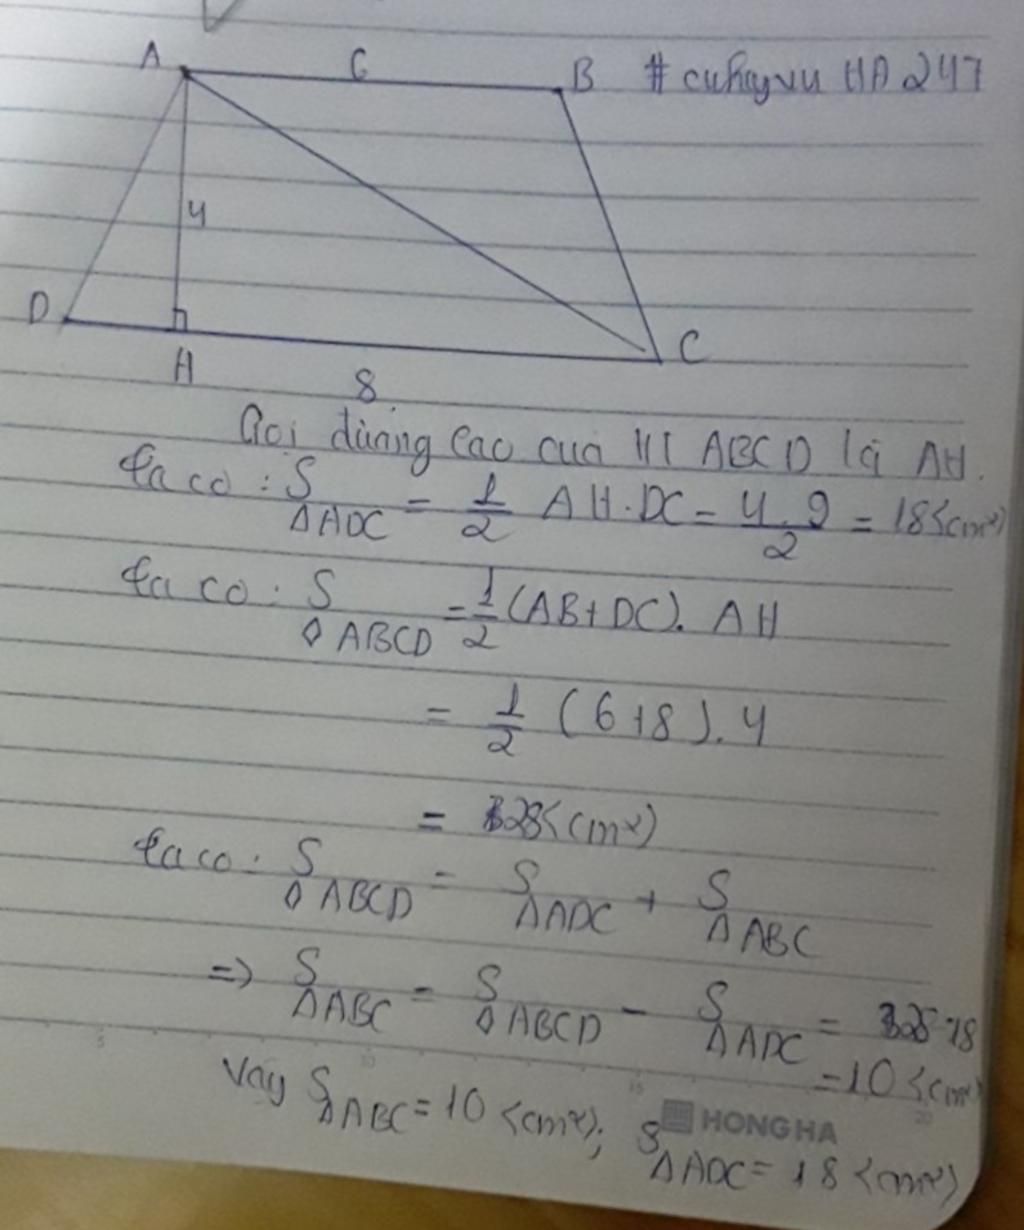 A 6 B # cuhayvu HA 247
4
D H 8 C
Gọi đường cao của ABCD là AH.
ta co: S ΔADC = 1/2 AH.DC = 4.9/2 = 18<cm²)
ta co: S ◊ABCD = 1/2 (AB+DC). AH
= 1/2 (6+8).4
= 28<cm²)
ta co: S ◊ABCD = S ΔADC + S ΔABC
=> S ΔABC = S ◊ABCD - S ΔADC = 28-18
=10<cm²)
Vay S ΔABC = 10 <cm²); S ΔADC = 18 <cm²)
HONG HA